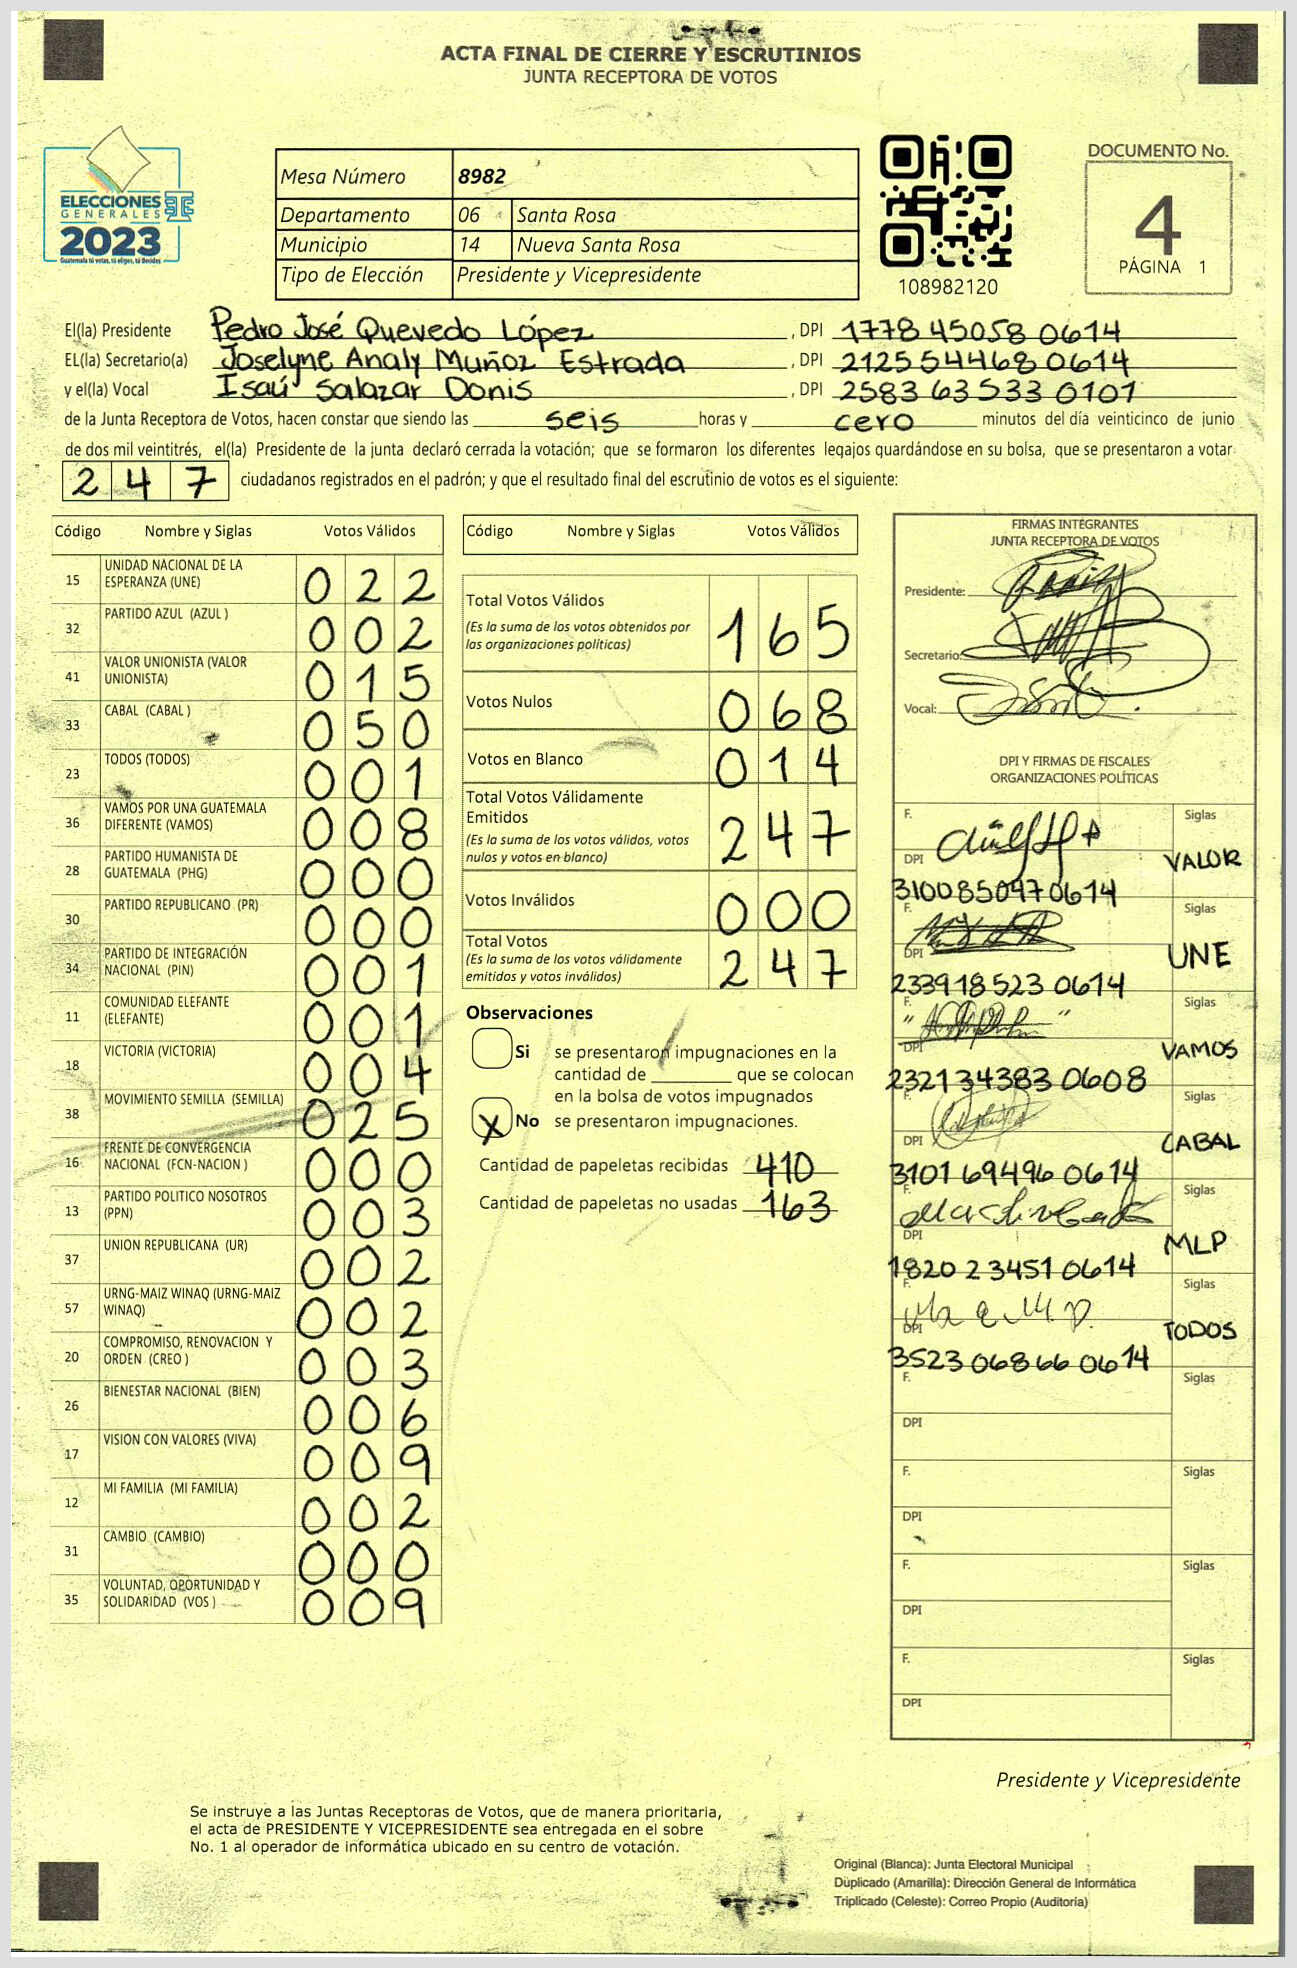 ACTA FINAL DE CIERRE Y ESCRUTINIOS
JUNTA RECEPTORA DE VOTOS
ELECCIONES
GENERALES
2023
Guatemala tú votas, tú eliges, tú Decides
Mesa Número 8982
Departamento 06 Santa Rosa
Municipio 14 Nueva Santa Rosa
Tipo de Elección Presidente y Vicepresidente
108982120
DOCUMENTO No.
4
PÁGINA 1
El(la) Presidente Pedro José Quevedo López, DPI 1778 45058 0614
EL(la) Secretario(a) Joselyne Analy Muñoz Estrada, DPI 2125 54468 0614
y el(la) Vocal Isaú Salazar Donis, DPI 2583 63533 0101
de la Junta Receptora de Votos, hacen constar que siendo las seis horas y cero minutos del día veinticinco de junio
de dos mil veintitrés, el(la) Presidente de la junta declaró cerrada la votación; que se formaron los diferentes legajos guardándose en su bolsa, que se presentaron a votar
247 ciudadanos registrados en el padrón; y que el resultado final del escrutinio de votos es el siguiente:
Código Nombre y Siglas Votos Válidos
15 UNIDAD NACIONAL DE LA ESPERANZA (UNE) 022
32 PARTIDO AZUL (AZUL ) 002
41 VALOR UNIONISTA (VALOR UNIONISTA) 015
33 CABAL (CABAL ) 050
23 TODOS (TODOS) 001
36 VAMOS POR UNA GUATEMALA DIFERENTE (VAMOS) 008
28 PARTIDO HUMANISTA DE GUATEMALA (PHG) 000
30 PARTIDO REPUBLICANO (PR) 000
34 PARTIDO DE INTEGRACIÓN NACIONAL (PIN) 001
11 COMUNIDAD ELEFANTE (ELEFANTE) 001
18 VICTORIA (VICTORIA) 004
38 MOVIMIENTO SEMILLA (SEMILLA) 025
16 FRENTE DE CONVERGENCIA NACIONAL (FCN-NACION ) 000
13 PARTIDO POLITICO NOSOTROS (PPN) 003
37 UNION REPUBLICANA (UR) 002
57 URNG-MAIZ WINAQ (URNG-MAIZ WINAQ) 002
20 COMPROMISO, RENOVACION Y ORDEN (CREO ) 003
26 BIENESTAR NACIONAL (BIEN) 006
17 VISION CON VALORES (VIVA) 009
12 MI FAMILIA (MI FAMILIA) 002
31 CAMBIO (CAMBIO) 000
35 VOLUNTAD, OPORTUNIDAD Y SOLIDARIDAD (VOS ) 009
Código Nombre y Siglas Votos Válidos
Total Votos Válidos 165
(Es la suma de los votos obtenidos por
las organizaciones políticas)
Votos Nulos 068
Votos en Blanco 014
Total Votos Válidamente
Emitidos 247
(Es la suma de los votos válidos, votos
nulos y votos en blanco)
Votos Inválidos 000
Total Votos 247
(Es la suma de los votos válidamente
emitidos y votos inválidos)
Observaciones
Si se presentaron impugnaciones en la
cantidad de ________ que se colocan
en la bolsa de votos impugnados
X No se presentaron impugnaciones.
Cantidad de papeletas recibidas 410
Cantidad de papeletas no usadas 163
FIRMAS INTEGRANTES
JUNTA RECEPTORA DE VOTOS
Presidente:
Secretario:
Vocal:
DPI Y FIRMAS DE FISCALES
ORGANIZACIONES POLÍTICAS
F. Siglas VALOR
DPI 3100850970614
F. Siglas UNE
DPI 233918523 0614
F. Siglas VAMOS
DPI 232134383 0608
F. Siglas CABAL
DPI 3101 69496 0614
F. Siglas MLP
DPI 1820 2 3451 0614
F. Siglas TODOS
DPI 3523 06866 0614
F. Siglas
DPI
F. Siglas
DPI
F. Siglas
DPI
F. Siglas
DPI
Presidente y Vicepresidente
Se instruye a las Juntas Receptoras de Votos, que de manera prioritaria,
el acta de PRESIDENTE Y VICEPRESIDENTE sea entregada en el sobre
No. 1 al operador de informática ubicado en su centro de votación.
Original (Blanca): Junta Electoral Municipal
Duplicado (Amarilla): Dirección General de Informática
Triplicado (Celeste): Correo Propio (Auditoría)